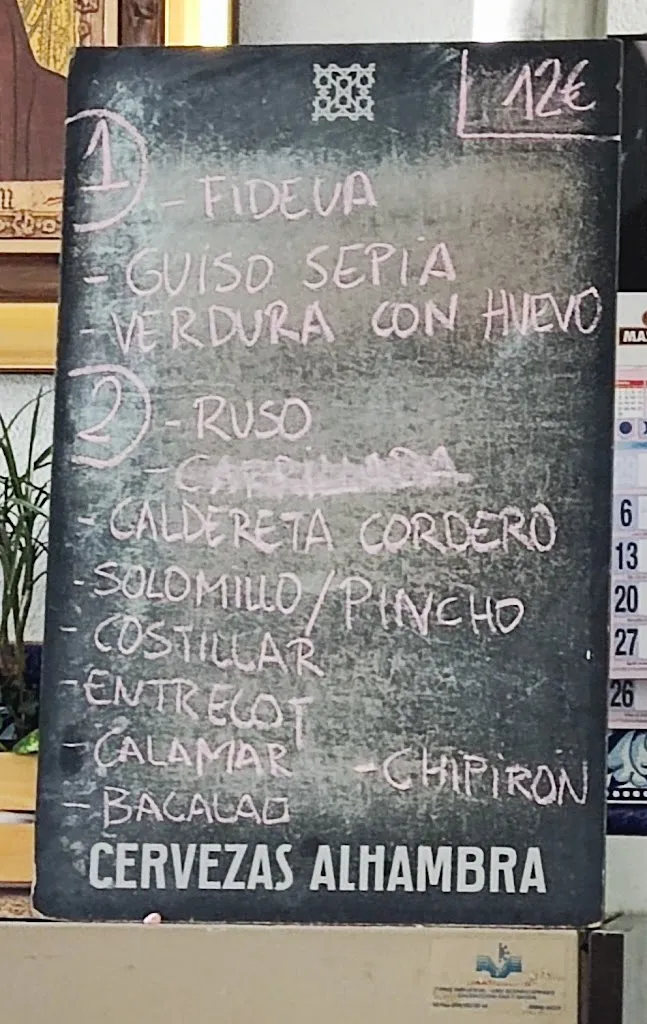 12€
1
- FIDEUA
- GUISO SEPIA
- VERDURA CON HUEVO
2
- RUSO
- CARRILLADA
- CALDERETA CORDERO
- SOLOMILLO/PINCHO
- COSTILLAR
- ENTRECOT
- CALAMAR - CHIPIRON
- BACALAO
CERVEZAS ALHAMBRA
MA
6
13
20
27
26